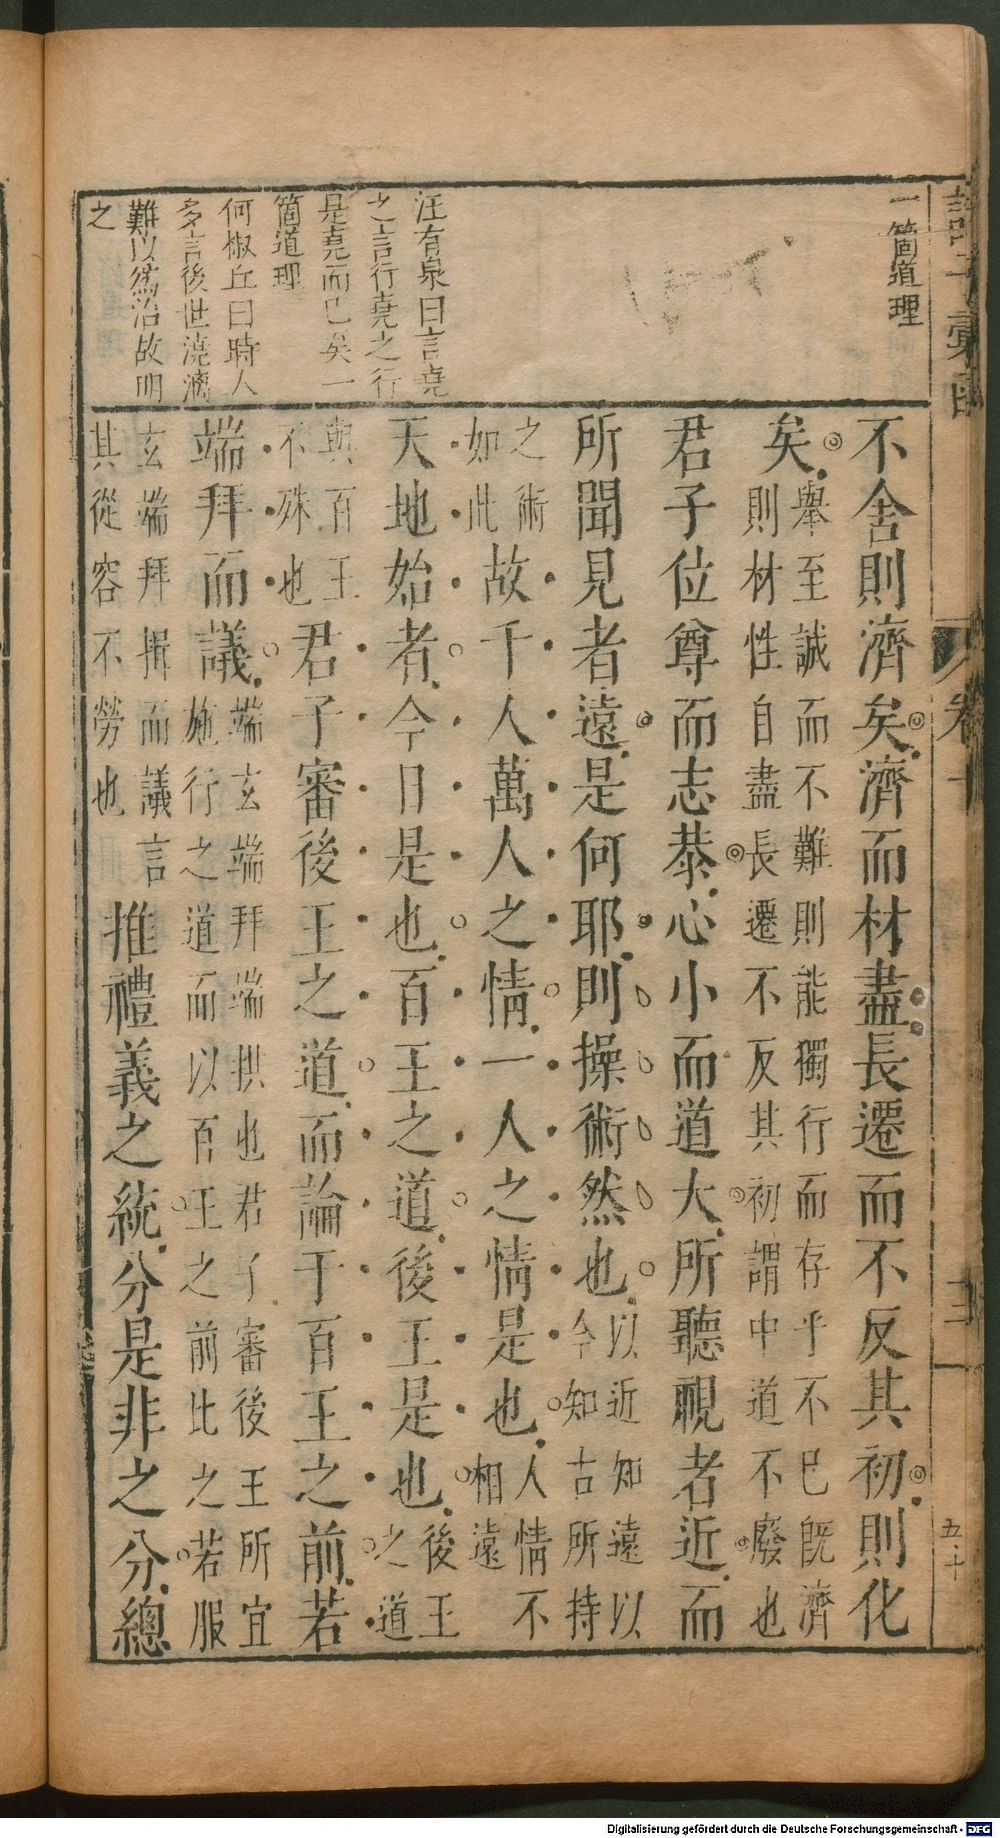 一箇道理
汪有泉曰言堯
之言行堯之行
是堯而已矣一
箇道理
何椒丘曰時人
多言後世澆漓
難以為治故明
之
不舍則濟矣濟而材盡長遷而不反其初則化
矣舉至誠而不難則能獨行而存乎不已既濟
則材性自盡長遷不反其初謂中道不廢也
君子位尊而志恭心小而道大所聽視者近而
所聞見者遠是何耶則操術然也以近知遠以
今知古所持
之術
如此故千人萬人之情一人之情是也人情不
相遠
天地始者今日是也百王之道後王是也後王
之道
與百王
不殊也君子審後王之道而論于百王之前若
端拜而議端玄端拜端拱也君子審後王所宜
施行之道而以百王之前比之若服
玄端拜揖而議言
其從容不勞也推禮義之統分是非之分總
卷十
三
五十
Digitalisierung gefördert durch die Deutsche Forschungsgemeinschaft - DFG